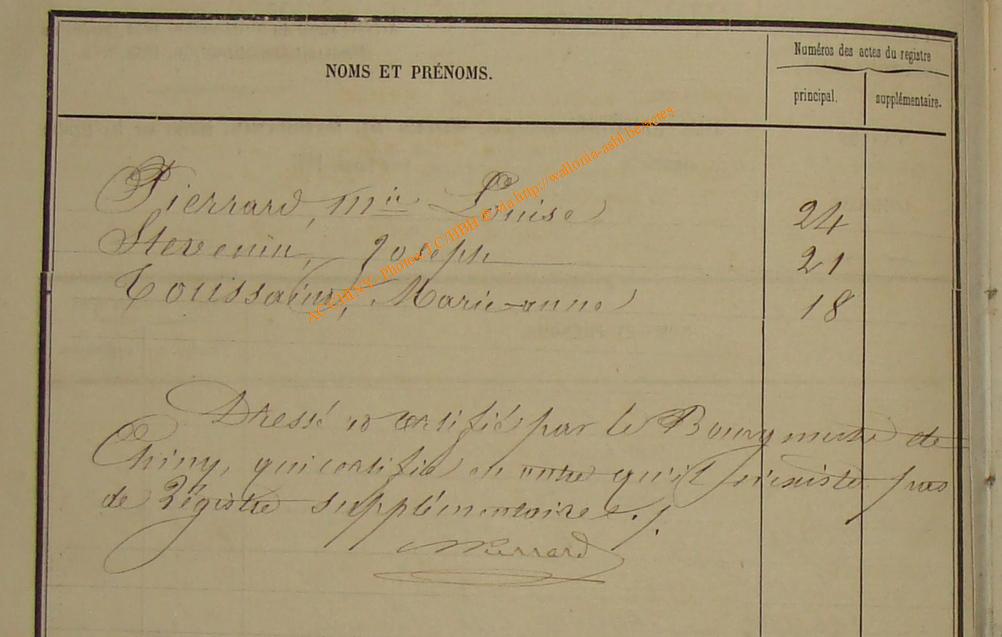 NOMS ET PRÉNOMS.
Numéros des actes du registre
principal. supplémentaire.
Pierrard, Mie Louise 24
Stevenin, Joseph 21
Toussaint, Marie-anne 18
Dressé et certifié par le Bourgmestre de
Chiny, qui certifie en outre qu'il n'existe pas
de Régistre supplémentaire./.
Pierrard
http://wallonia-asbl.be/actes